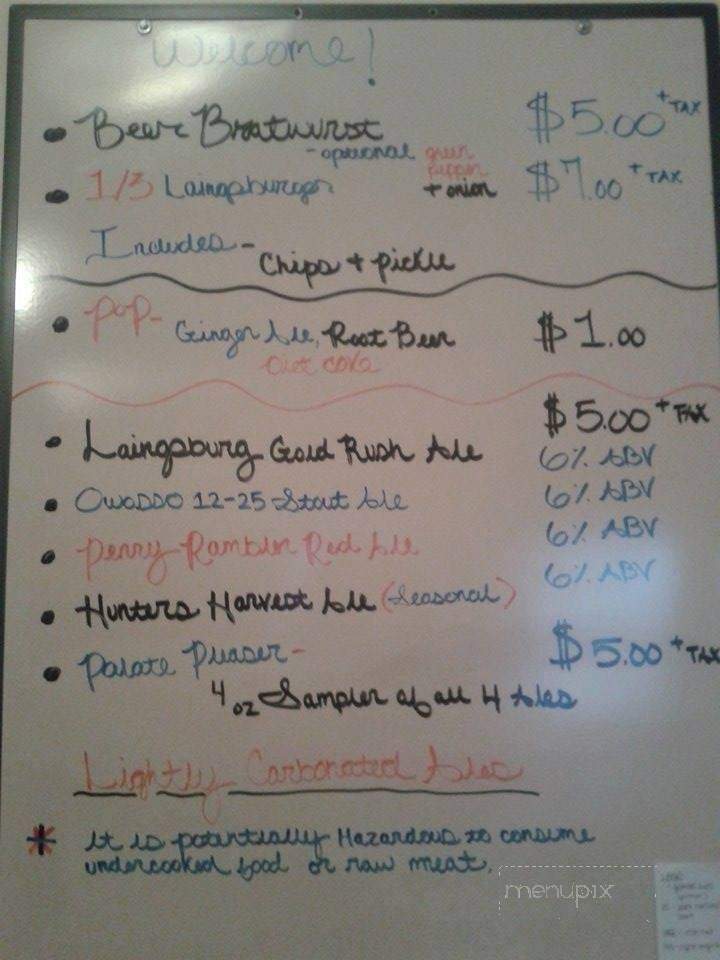 Welcome!
• Beer Bratwurst $5.00 + TAX
- optional green pepper + onion
• 1/3 Laingsburger $7.00 + TAX
Includes - Chips + pickle
• Pop - Ginger Ale, Root Beer $1.00
Diet coke
$5.00 + TAX
• Laingsburg Gold Rush Ale 6% ABV
• Owosso 12-25 Stout Ale 6% ABV
• Perry Rambler Red Ale 6% ABV
• Hunters Harvest Ale (Seasonal) 6% ABV
• Palate Pleaser - $5.00 + TAX
4 oz Sampler of all 4 Ales
Lightly Carbonated Ales
* It is potentially Hazardous to consume
undercooked food or raw meat.
menupix